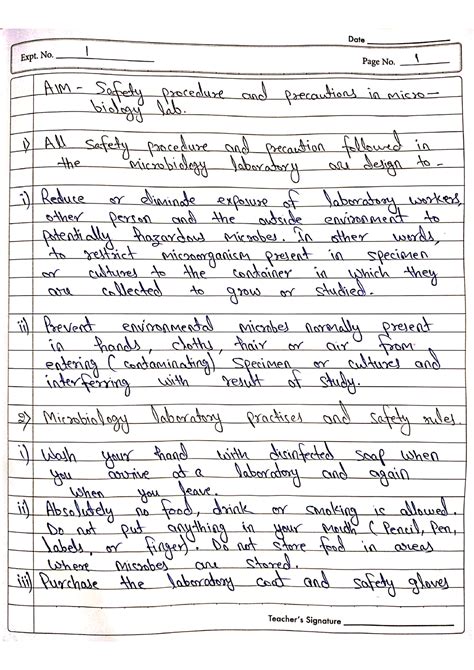 Date
Expt. No. 1
Page No. 1
AIM - Safety procedure and precautions in micro-
biology lab.
1) All safety procedure and precaution followed in
the microbiology laboratory are design to -
i) Reduce or eliminate exposure of laboratory workers,
other person and the outside environment to
potentially hazardous microbes. In other words,
to restrict microorganism present in specimen
or cultures to the container in which they
are collected to grow or studied.
ii) Prevent environmental microbes normally present
in hands, cloths, hair or air from
entering (contaminating) specimen or cultures and
interferring with result of study.
2) Microbiology laboratory practises and safety rules.
i) Wash your hand with disinfected soap when
you arrive at a laboratory and again
when you leave.
ii) Absolutely no food, drink or smoking is allowed.
Do not put anything in your mouth (Pencil, Pen,
labels, or finger). Do not store food in areas
where microbes are stored.
iii) Purchase the laboratory coat and safety gloves
Teacher's Signature